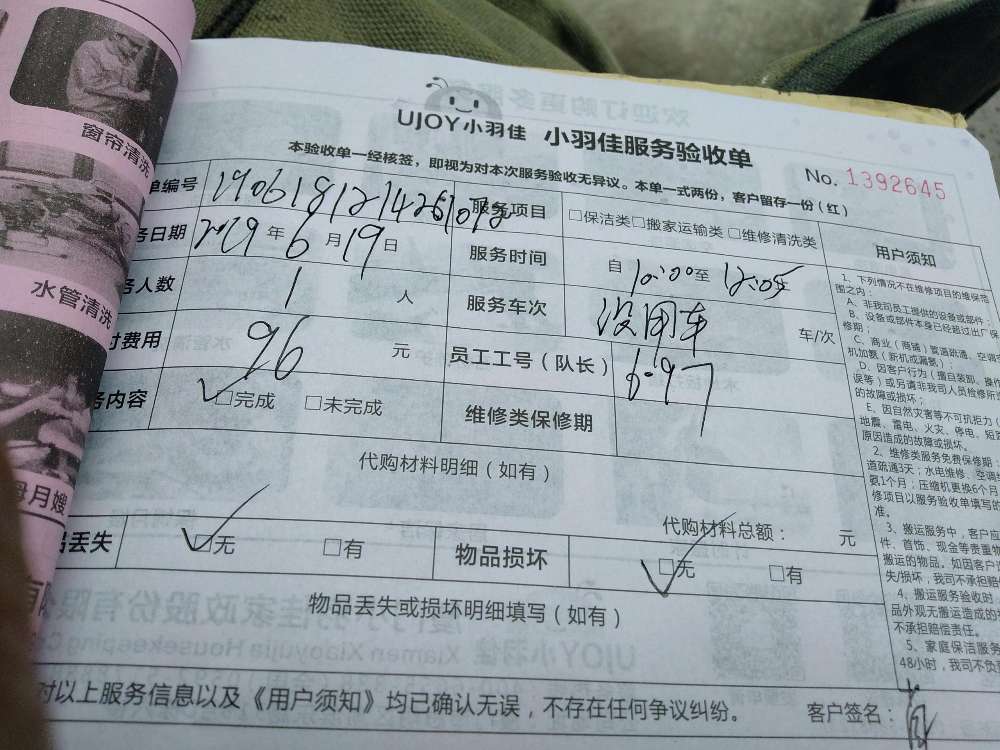 窗帘清洗
水管清洗
母月嫂
欢迎订购更多服
UJOY小羽佳 小羽佳服务验收单
No. 1392645
本验收单一经核签，即视为对本次服务验收无异议。本单一式两份，客户留存一份（红）
单编号 服务项目 □保洁类□搬家运输类□维修清洗类 用户须知
务日期 2019年6月19日 服务时间 自10:00至12:05
务人数 1人 服务车次 没用车 车/次
付费用 96元 员工工号（队长） 6-97
务内容 ✓□完成 □未完成 维修类保修期
代购材料明细（如有）
代购材料总额： 元
品丢失 ✓□无 □有 物品损坏 ✓□无 □有
物品丢失或损坏明细填写（如有）
对以上服务信息以及《用户须知》均已确认无误，不存在任何争议纠纷。 客户签名：
1、下列情况不在维修项目的维保范
围之内：
A、非我司员工提供的设备或部件；
B、设备或部件本身已经超过出厂保
修期；
C、商业（商铺）管道疏通、空调
机加氨（新机或漏氨）；
D、因客户行为（擅自装卸、操作
误等）或另请非我司人员检修所
的故障或损坏；
E、因自然灾害等不可抗拒力（
地震、雷电、火灾、停电、短
原因造成的故障或损坏。
2、维修类服务免费保修期：
道疏通3天；水电维修、空调
氨1个月；压缩机更换6个月
修项目以服务验收单填写的
准。
3、搬运服务中，客户应
件、首饰、现金等贵重物
搬运的物品。如因客户
失/损坏，我司不承担赔
4、搬运服务验收时，
品外观无搬运造成的
不承担赔偿责任。
5、家庭保洁服务
48小时，我司不负
UJOY小羽佳
Xiamen Xiaoyujia Housekeeping